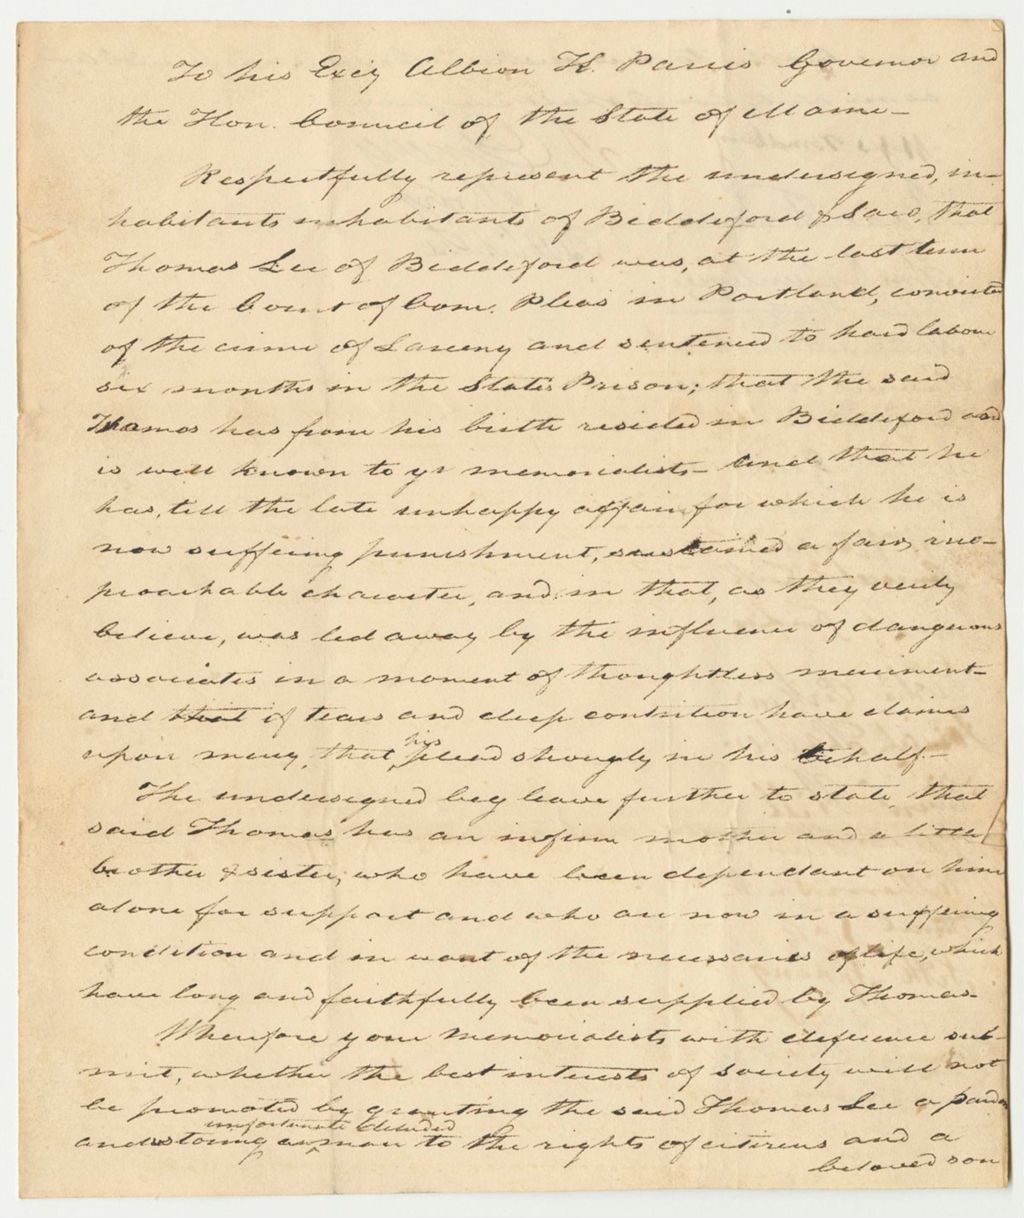 To his Excy Albion K. Parris Governor and
the Hon. Council of the State of Maine—
Respectfully represent the undersigned, in-
habitants inhabitants of Biddeford & Saco, that
Thomas Lee of Biddeford was, at the last term
of the Court of Com. Pleas in Portland, convicted
of the crime of Larceny and sentenced to hard labour
six months in the State's Prison; that the said
Thomas has from his birth resided in Biddeford and
is well known to yr memorialists— and that he
has, till the late unhappy affair, for which he is
now suffering punishment, sustained a fair, irre-
proachable character, and, in that, as they verily
believe, was led away by the influence of dangerous
associates in a moment of thoughtless merriment—
and that if tears and deep contrition have claims
upon mercy, that, his plead strongly in his behalf—
The undersigned beg leave further to state, that
said Thomas has an infirm mother and a little
brother & sister, who have been dependant on him
alone for support and who are now in a suffering
condition and in want of the necessaries of life, which
have long and faithfully been supplied by Thomas—
Wherefore your Memorialists with deference sub-
mit, whether the best interests of society will not
be promoted by granting the said Thomas Lee a pardon
unfortunate deluded
and restoring a man to the rights of citizens and a
beloved son